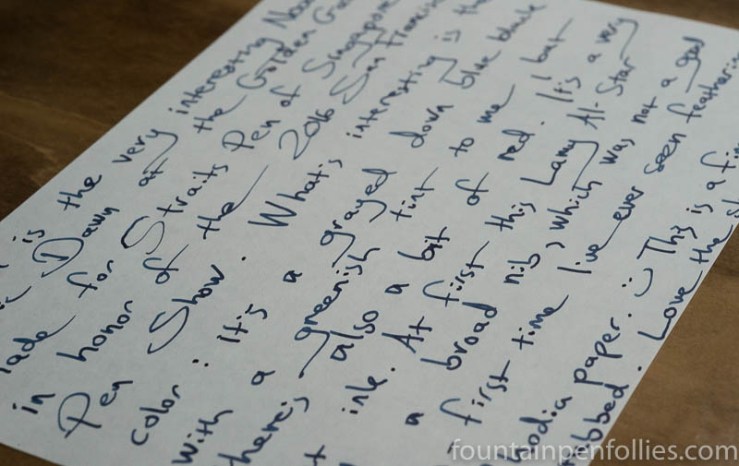 is the very interesting Noo
Dawn at the Golden Ga
lade for Straits Pen of Singapore
in honor of the 2016 San Francis
Pen Show. What's interesting is the
color: it's a grayed down blue black
with a greenish tint to me but
there's also a bit of red. It's a very
t ink. At first this Lamy Al-Star
a broad nib, which was not a good
first time I've ever seen feathering
hodia paper. :) This is a fi
bbed. Love the sh
fountainpenfollies.com